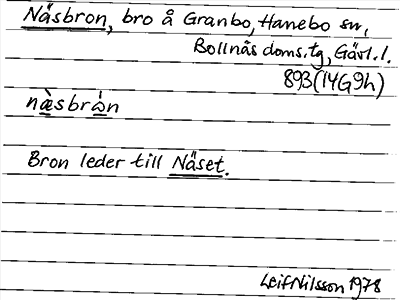 Näsbron, bro å Granbo, Hanebo sn,
Bollnäs doms.tg, Gävl.l.
893(14G9h)
næ̀sbrὼn
Bron leder till Näset.
Leif Nilsson 1978